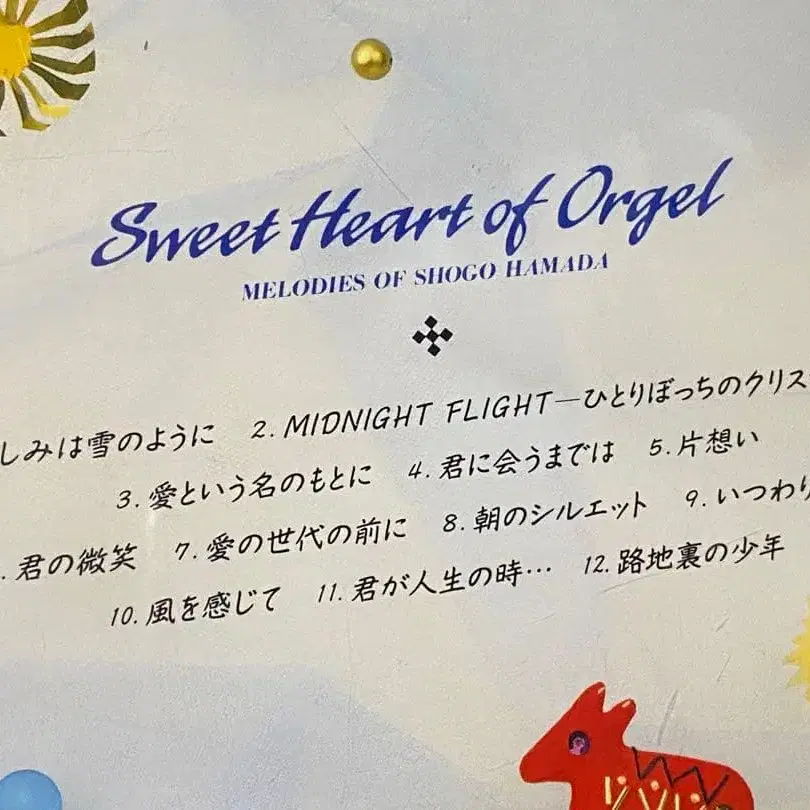 Sweet Heart of Orgel
MELODIES OF SHOGO HAMADA
しみは雪のように 2. MIDNIGHT FLIGHT—ひとりぼっちのクリス
3. 愛という名のもとに 4. 君に会うまでは 5. 片想い
. 君の微笑 7. 愛の世代の前に 8. 朝のシルエット 9. いつわり
10. 風を感じて 11. 君が人生の時… 12. 路地裏の少年